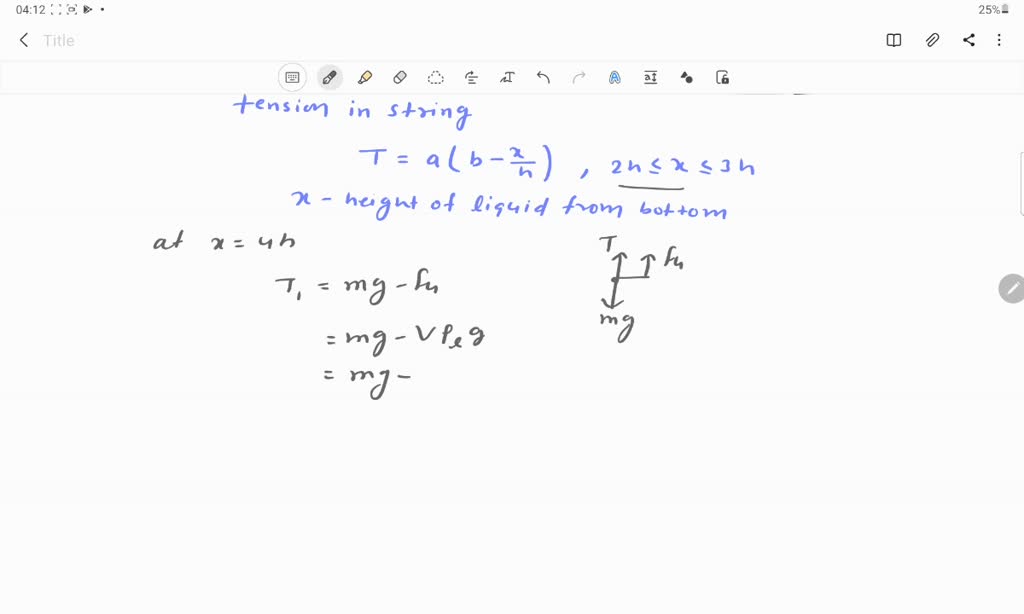 04:12
25%
Title
tension in string
T = a(b - x/h) , 2h ≤ x ≤ 3h
x - height of liquid from bottom
at x = 4h
T₁ = mg - fu
= mg - Vρₑg
= mg -
T fu
mg